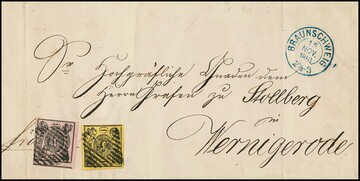 BRAUNSCHWEIG
15
NOV.
2½-3
Sr Hochgräfliche Gnaden dem
Herrn Grafen zu Stollberg
in
Wernigerode.